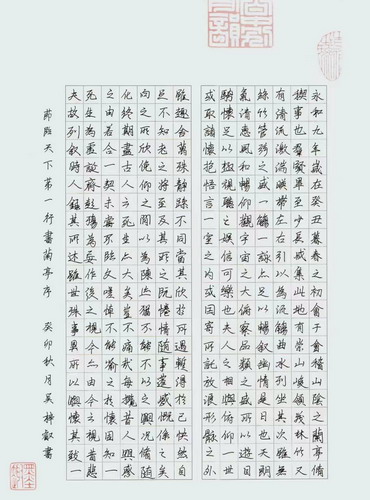 永和九年歲在癸丑暮春之初會于會稽山陰之蘭亭脩
稧事也羣賢畢至少長咸集此地有崇山峻領茂林竹又
有清流激湍暎帶左右引以為流觴曲水列坐其次雖無
絲竹管弦之盛一觴一詠亦足以暢敘幽情是日也天朗
氣清惠風和暢仰觀宇宙之大俯察品類之盛所以遊目
騁懷足以極視聽之娛信可樂也夫人之相與俯仰一世
或取諸懷抱悟言一室之內或因寄所託放浪形骸之外
雖趣舍萬殊靜躁不同當其欣於所遇暫得於己快然自
足不知老之將至及其所之既惓情隨事遷感慨係之矣
向之所欣俛仰之閒以為陳迹猶不能不以之興況脩隨
化終期盡古人云死生亦大矣豈不痛哉每攬昔人興感
之由若合一契未嘗不臨文嗟悼不能喻之於懷固知一
死生為虛誕齊彭殤為妄作後之視今亦由今之視昔悲
夫故列敘時人錄其所述雖世殊事異所以興懷其致一
節臨天下第一行書蘭亭序 癸卯秋月吳梓叡書